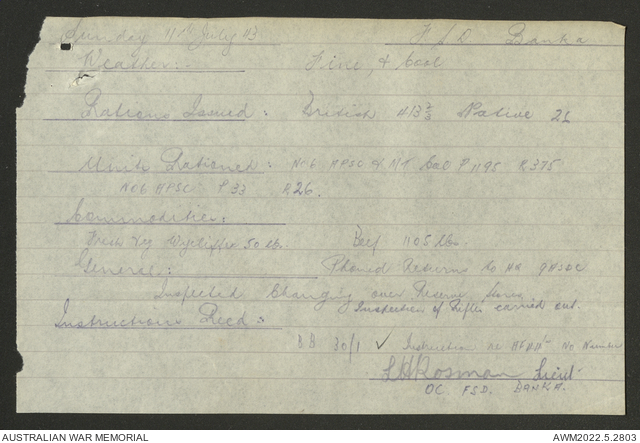 Sunday 11th July 43 F.S.D Banka
Weather:- Fine, & Cool
Rations Issued: British 413 2/3 Native 26
Units Rationed: No 6 HPSC & MT Coal P 1195 R 375
No 6 HPSC P 33 R 26.
Commodities:
Fresh Veg 50 lbs. Beef 1105 lbs.
General: Phoned Returns to HQ
Inspected Changing over Reserve Stores
Inspection of Rifles carried out.
Instructions Recd:
BB 30/1 ✓ Instruction re No Number
L H Rosman Lieut
OC. FSD. BANKA.
AUSTRALIAN WAR MEMORIAL AWM2022.5.2803